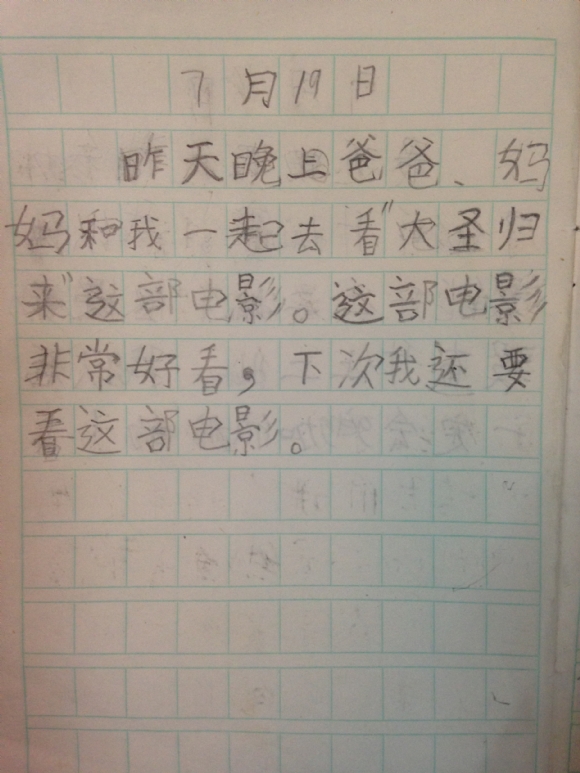 7月19日
昨天晚上爸爸、妈
妈和我一起去看"大圣归
来"这部电影。这部电影
非常好看，下次我还要
看这部电影。